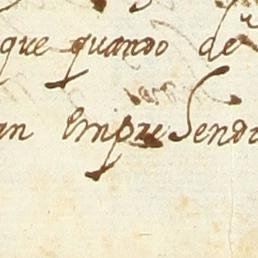 que quando de
an EmpreSend